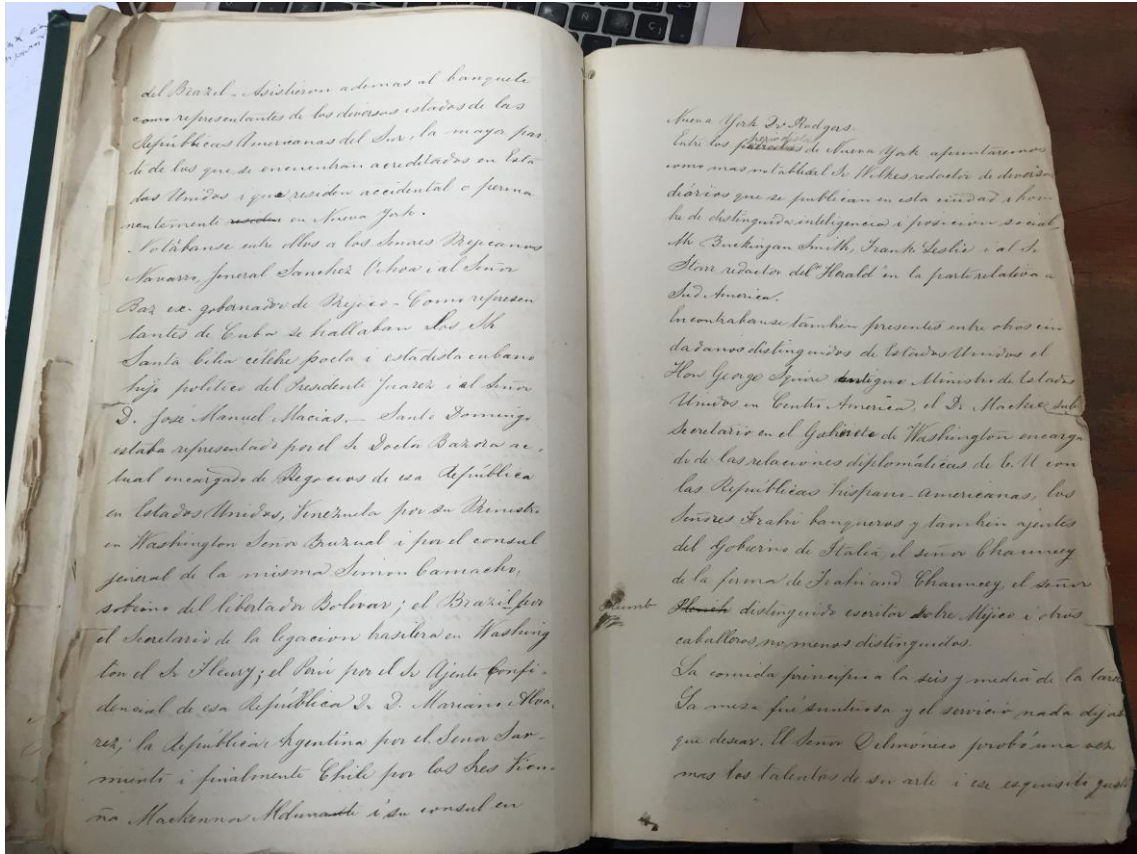 del Brazil - Asistieron ademas al banquete
como representantes de los diversos estados de las
Repúblicas Americanas del Sur, la mayor par-
te de los que se encuentran acreditados en Esta
dos Unidos i que residen accidental o perma
nentemente en Nueva York.
Notábanse entre ellos a los Senores Mejicanos
Navarro, Jeneral Sanchez Ochoa i al Señor
Baz ex-gobernador de Mejico - Como represen
tantes de Cuba se hallaban los
Santa Cilia célebre poeta i estadista cubano
hijo politico del Presidente Juarez i al Señor
D. José Manuel Macias. - Santo Domingo
estaba representado por el Sr Doctor Bazora ac-
tual encargado de Negocios de esa República
en Estados Unidos, Venezuela por su Ministro
en Washington Señor Bruzual i por el consul
jeneral de la misma Simon Camacho,
sobrino del libertador Bolivar; el Brazil por
el Secretario de la legacion brasilera en Washing
ton el Sr Fleury; el Perú por el Sr Ajente Confi-
dencial de esa República Dr D. Mariano Alva
rez; la República Argentina por el Señor Sar-
miento i finalmente Chile por los Sres Vicu-
ña Mackenna i su consul en
Nueva York Dr Rodgers.
periodistas
Entre los de Nueva York apuntaremos
como mas notables el Sr Wilkes redactor de diversos
diários que se publican en esta ciudad i hom
bre de distinguida inteligencia i posicion social,
Mr Buckingan Smith, Frank Leslie i al Sr
Starr redactor del "Herald" en la parte relativa a
Sud America.
Encontrabanse tambien presentes entre otros ciu
dadanos distinguidos de Estados Unidos el
Hon George Squire antiguo Ministro de Estados
Unidos en Centro America, el Dr Mackie, sub
Secretario en el Gabinete de Washington encarga
do de las relaciones diplomáticas de E. U con
las Repúblicas hispano-americanas, los
Señores Frabri banqueros y tambien ajentes
del Gobierno de Italia, el señor Chauncey
de la firma de Frabri and Chauncey, el señor
Plumb
distinguido escritor sobre Méjico i otros
caballeros no menos distinguidos.
La comida principio a la seis y media de la tarde
La mesa fué suntuosa y el servicio nada dejaba
que desear. El Señor Delmónico probó una vez
mas los talentos de su arte i ese esquisito gusto